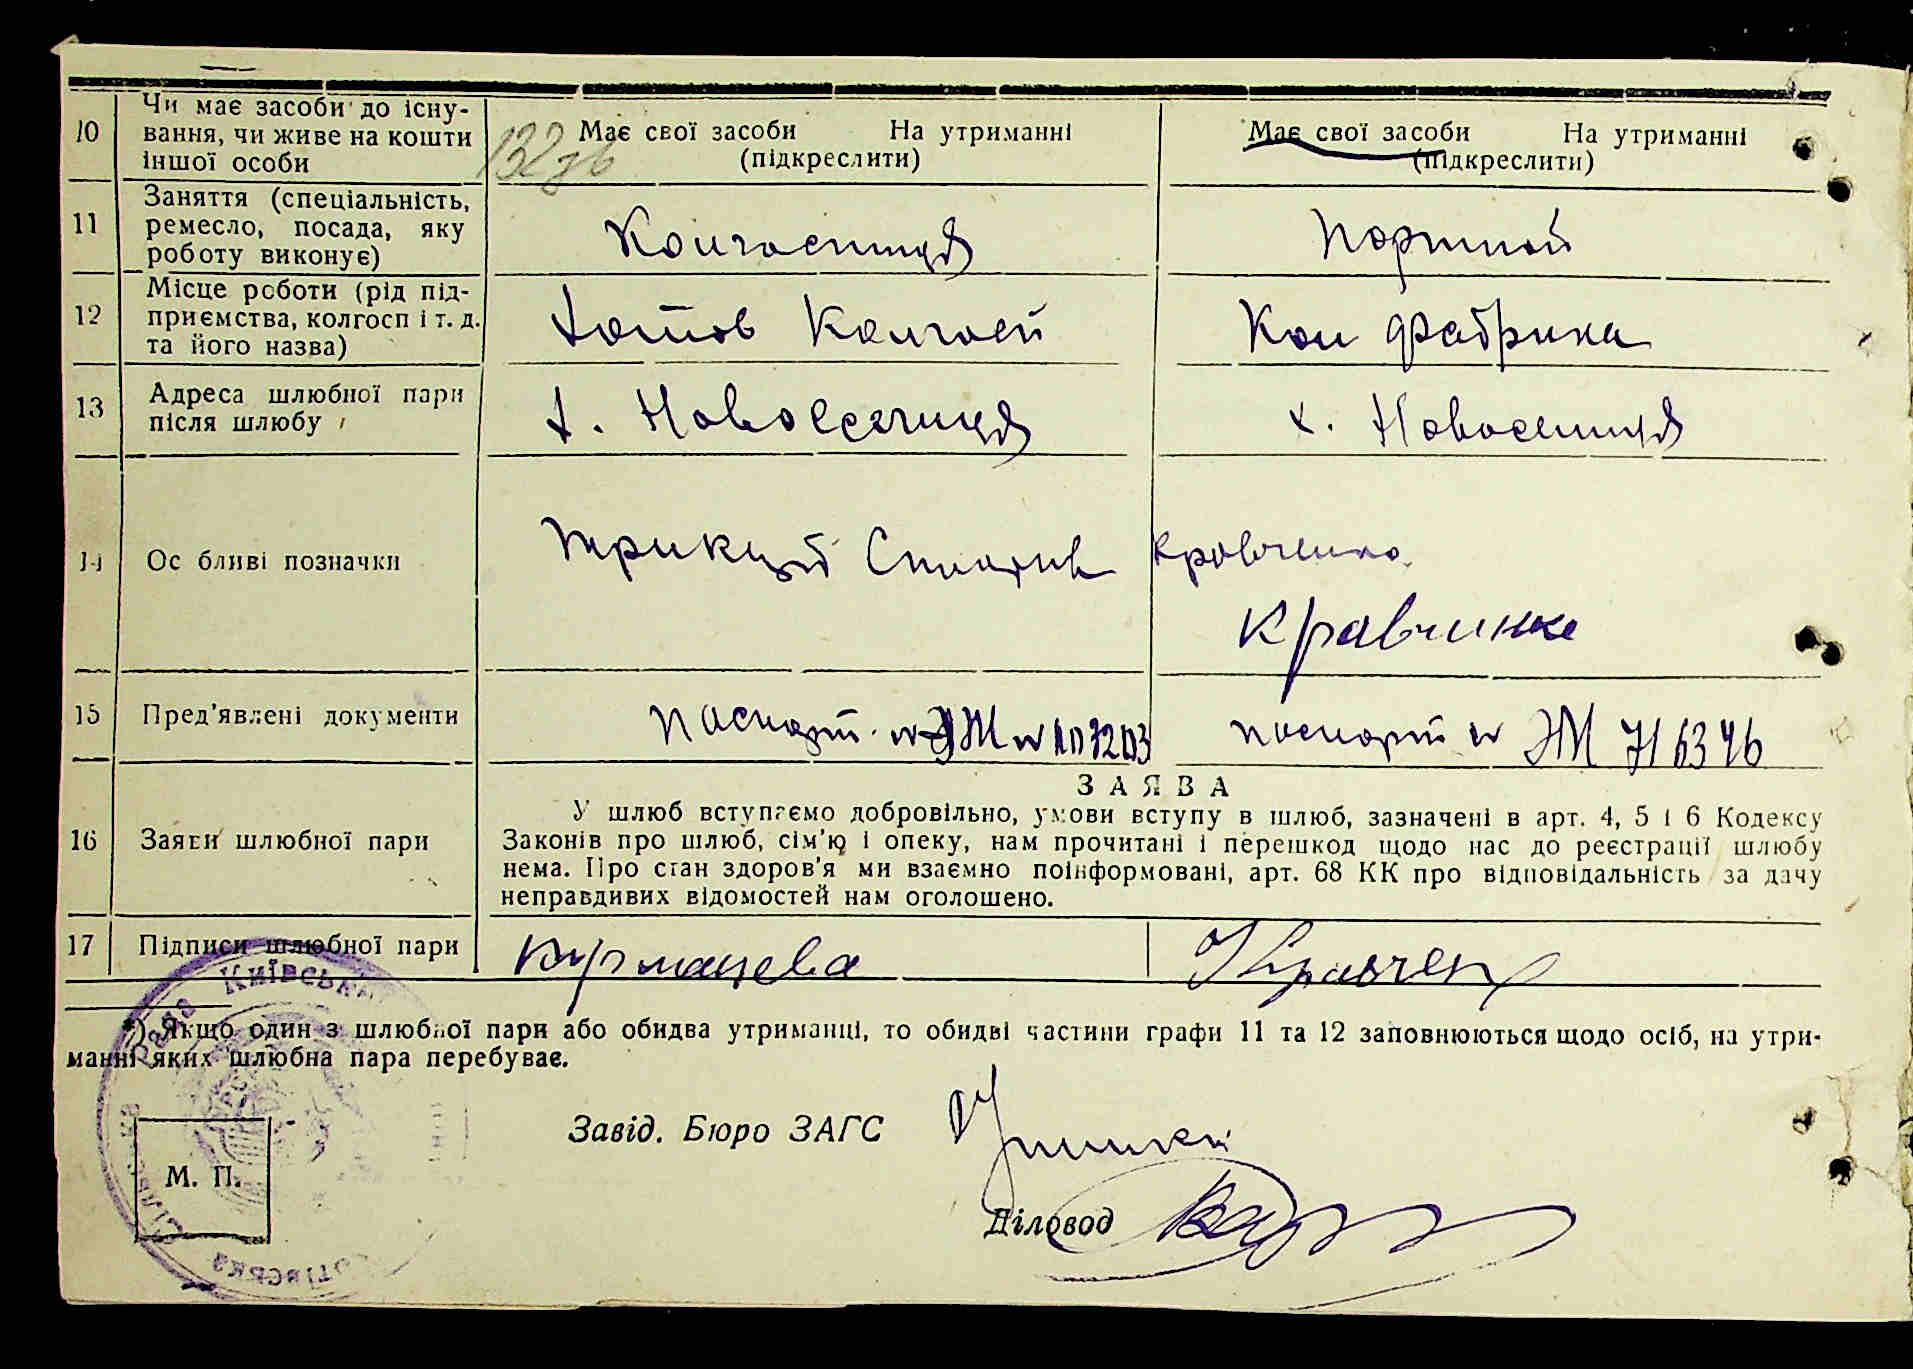 10 Чи має засоби до існу-
вання, чи живе на кошти
іншої особи
132зв
Має свої засоби На утриманні
(підкреслити)
Має свої засоби На утриманні
(підкреслити)
11 Заняття (спеціальність,
ремесло, посада, яку
роботу виконує)
Колгоспниця
портной
12 Місце роботи (рід під-
приємства, колгосп і т. д.
та його назва)
Хотов Колгосп
Кон фабрика
13 Адреса шлюбної пари
після шлюбу
х. Новоселиця
х. Новоселиця
14 Ос бливі позначки
Кравченко
Кравчинке
15 Пред'явлені документи
паспорт
паспорт № ЭМ 716346
ЗАЯВА
16 Заяви шлюбної пари
У шлюб вступаємо добровільно, умови вступу в шлюб, зазначені в арт. 4, 5 і 6 Кодексу
Законів про шлюб, сім'ю і опеку, нам прочитані і перешкод щодо нас до реєстрації шлюбу
нема. Про стан здоров'я ми взаємно поінформовані, арт. 68 КК про відповідальність за дачу
неправдивих відомостей нам оголошено.
17 Підписи шлюбної пари
*) Якщо один з шлюбної пари або обидва утриманці, то обидві частини графи 11 та 12 заповнюються щодо осіб, на утри-
манні яких шлюбна пара перебуває.
Завід. Бюро ЗАГС
М. П.
Діловод